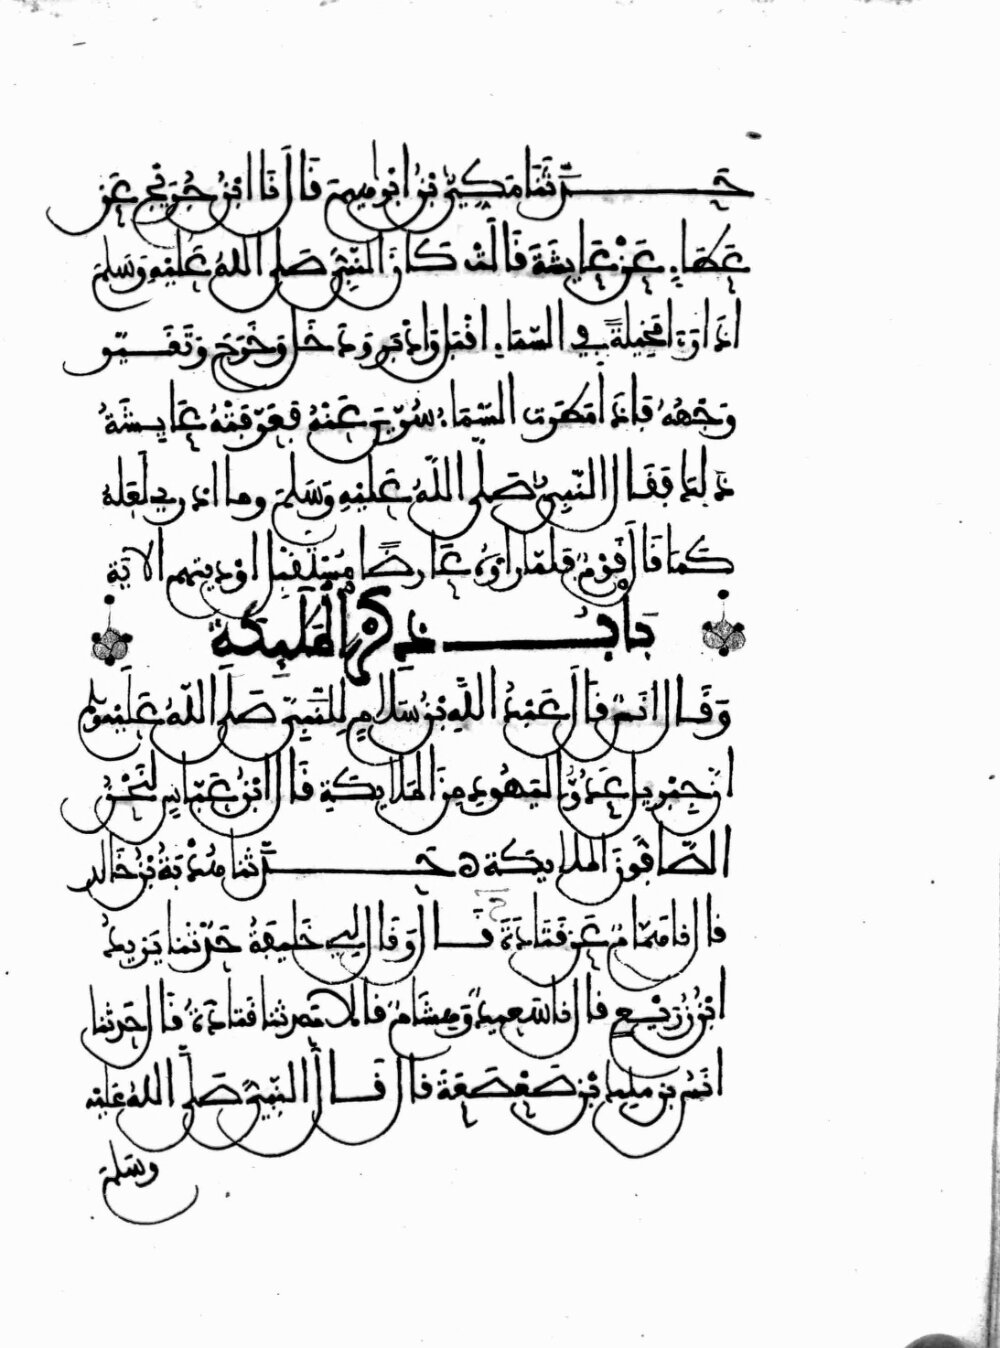 حَدَّثَنَا مَكِّيُّ بْنُ ابْرَاهِيمَ قَالَ نَا ابْنُ جُرَيْجٍ عَنْ
عَطَاءٍ عَنْ عَايِشَةَ قَالَتْ كَانَ النَّبِيُّ صَلَّى اللهُ عَلَيْهِ وَسَلَّمَ
اذَا رَءَا مَخِيلَةً فِي السَّمَاءِ اقْبَلَ وَادْبَرَ وَدَخَلَ وَخَرَجَ وَتَغَيَّرَ
وَجْهُهُ فَإِذَا أَمْطَرَتِ السَّمَاءُ سُرِّيَ عَنْهُ فَعَرَّفَتْهُ عَايِشَةُ
ذَلِكَ فَقَالَ النَّبِيُّ صَلَّى اللَّهُ عَلَيْهِ وَسَلَّمَ وما ادري لَعَلَّهُ
كَمَا قَالَ قَوْمٌ فَلَمَّا رَأَوْهُ عَارِضًا مُسْتَقْبِلَ اوديتهم الآيَةَ
بَابُ ذِكْرِ الْمَلَيِكَةِ
وَقَالَ انَسٌ قَالَ عَبْدُ اللَّهِ بْنُ سَلَامٍ لِلنَّبِيِّ صَلَّى اللَّهُ عَلَيْهِ وَسَلَّمَ
انَّ جِبْرِيلَ عَدُوُّ الْيَهُودِ مِنَ الْمَلَايِكَةِ قَالَ ابْنُ عَبَّاسٍ لَنَحْنُ
الصَّافُّونَ الْمَلَايِكَةُ حَدَّثَنَا هُدْبَةُ بْنُ خَالِدٍ
قال نا هَمَّامٌ عَنْ قَتَادَةَ قَالَ وَقَالَ لِي خَلِيفَةُ حَدَّثَنَا يَزِيدُ
ابْنُ زُرَيْعٍ قال نا سَعِيدٌ وَهِشَامٌ قالا حدثنا قَتَادَةُ قَالَ حَدَّثَنَا
انَسُ بْنُ مَلِكٍ عَنْ مَلِكِ بْنِ صَعْصَعَةَ قال قَالَ النَّبِيُّ صَلَّى اللهُ عَلَيْهِ
وسَلَّمَ